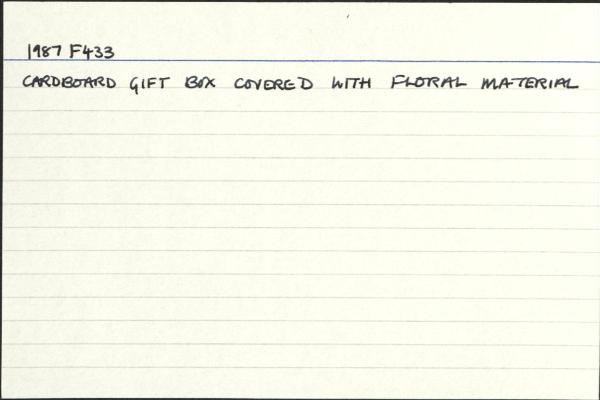 1987 F433
CARDBOARD GIFT BOX COVERED WITH FLORAL MATERIAL